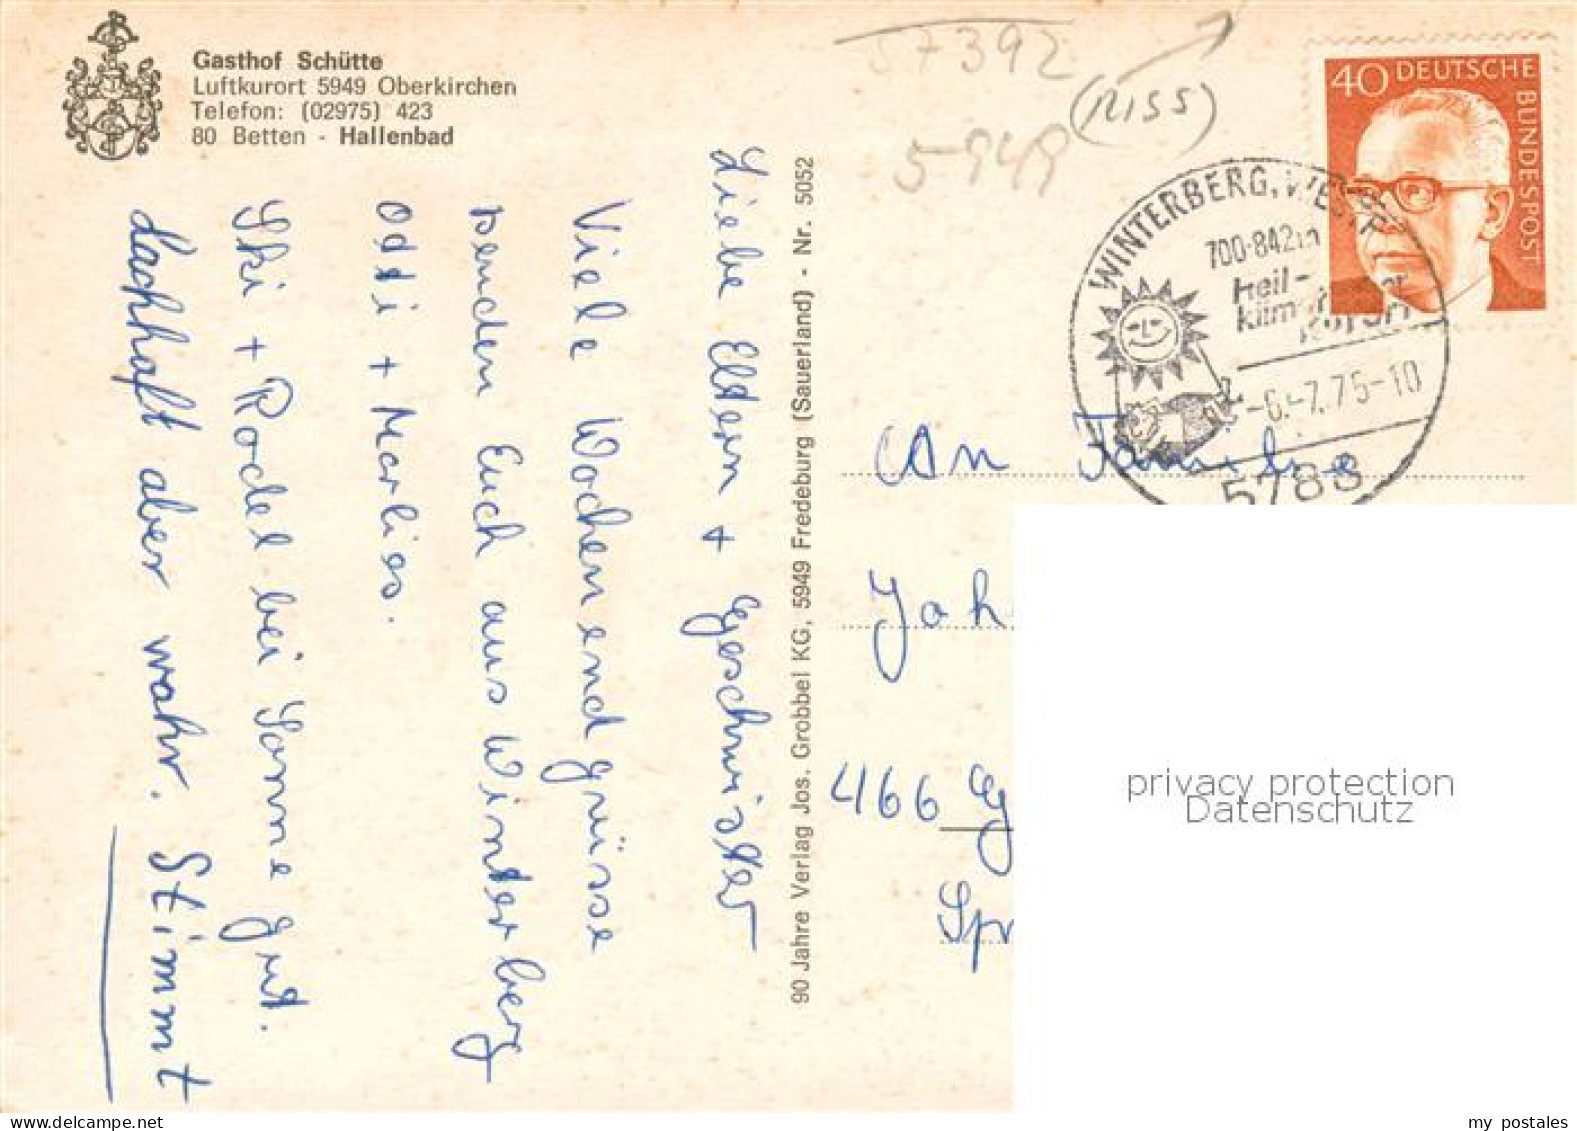 Gasthof Schütte
Luftkurort 5949 Oberkirchen
Telefon: (02975) 423
80 Betten - Hallenbad
57392
(RISS)
5949
40 DEUTSCHE BUNDESPOST
WINTERBERG, WESTF
700-842m
Heil-
klimatischer
Kurort
-6.-7.75-10
5788
Liebe Eltern + Geschwister
Viele Wochenendgrüsse
senden Euch aus Winterberg
Oddi + Marlies.
Ski + Rodel bei Sonne gut.
Lachhaft aber wahr. Stimmt
90 Jahre Verlag Jos. Grobbel KG, 5949 Fredeburg (Sauerland) - Nr. 5052
An Familie
Joh
466 G
Spr
privacy protection
Datenschutz
delcampe.net
my_postales